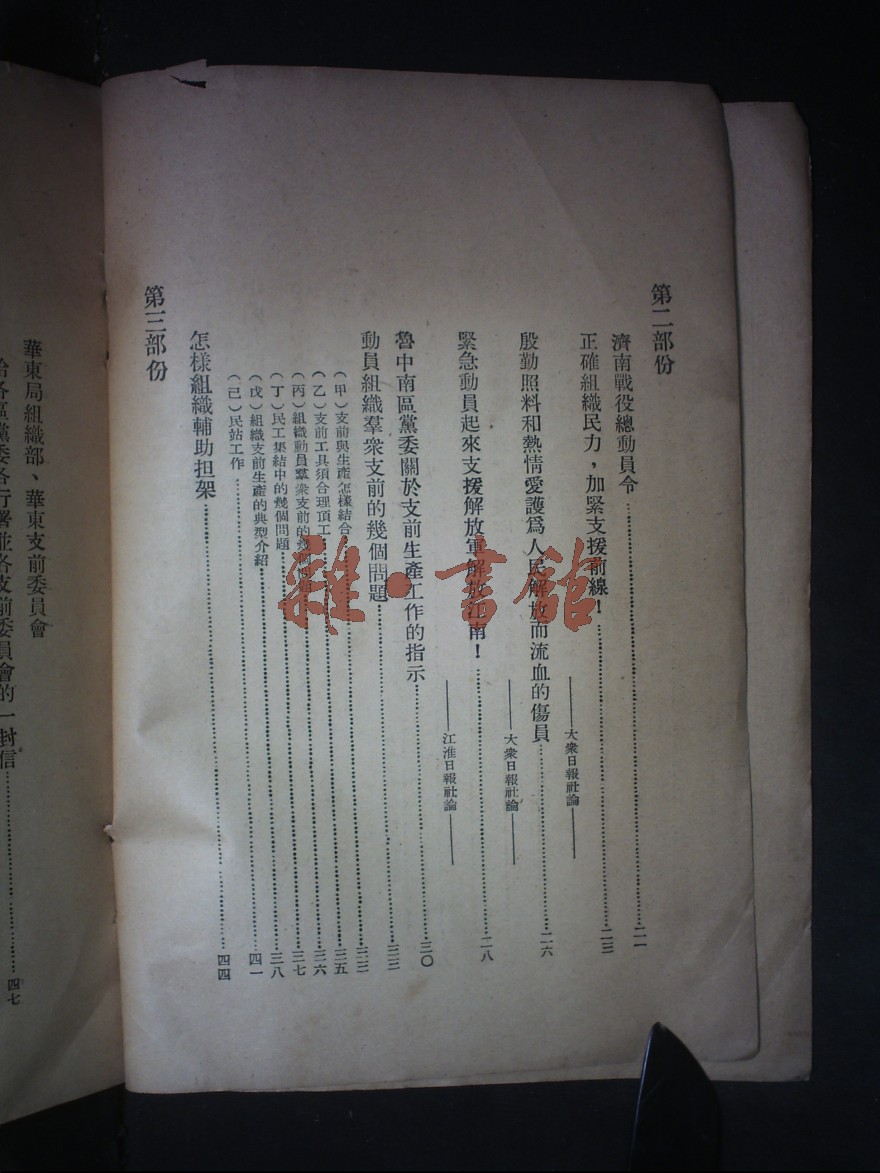 第二部份
濟南戰役總動員令……二一
正確組織民力，加緊支援前線！……二三
——大衆日報社論——
殷勤照料和熱情愛護爲人民解放而流血的傷員……二六
——大衆日報社論——
緊急動員起來支援解放軍解放江南！……二八
——江淮日報社論——
魯中南區黨委關於支前生產工作的指示……三〇
動員組織羣衆支前的幾個問題……三三
（甲）支前與生產怎樣結合……三五
（乙）支前工具須合理頂工……三六
（丙）組織動員羣衆支前的幾個問題……三七
（丁）民工集結中的幾個問題……三八
（戊）組織支前生產的典型介紹……四一
（己）民站工作
怎樣組織輔助担架……四四
第三部份
華東局組織部、華東支前委員會
給各區黨委各行署並各支前委員會的一封信……四七
雜·書館